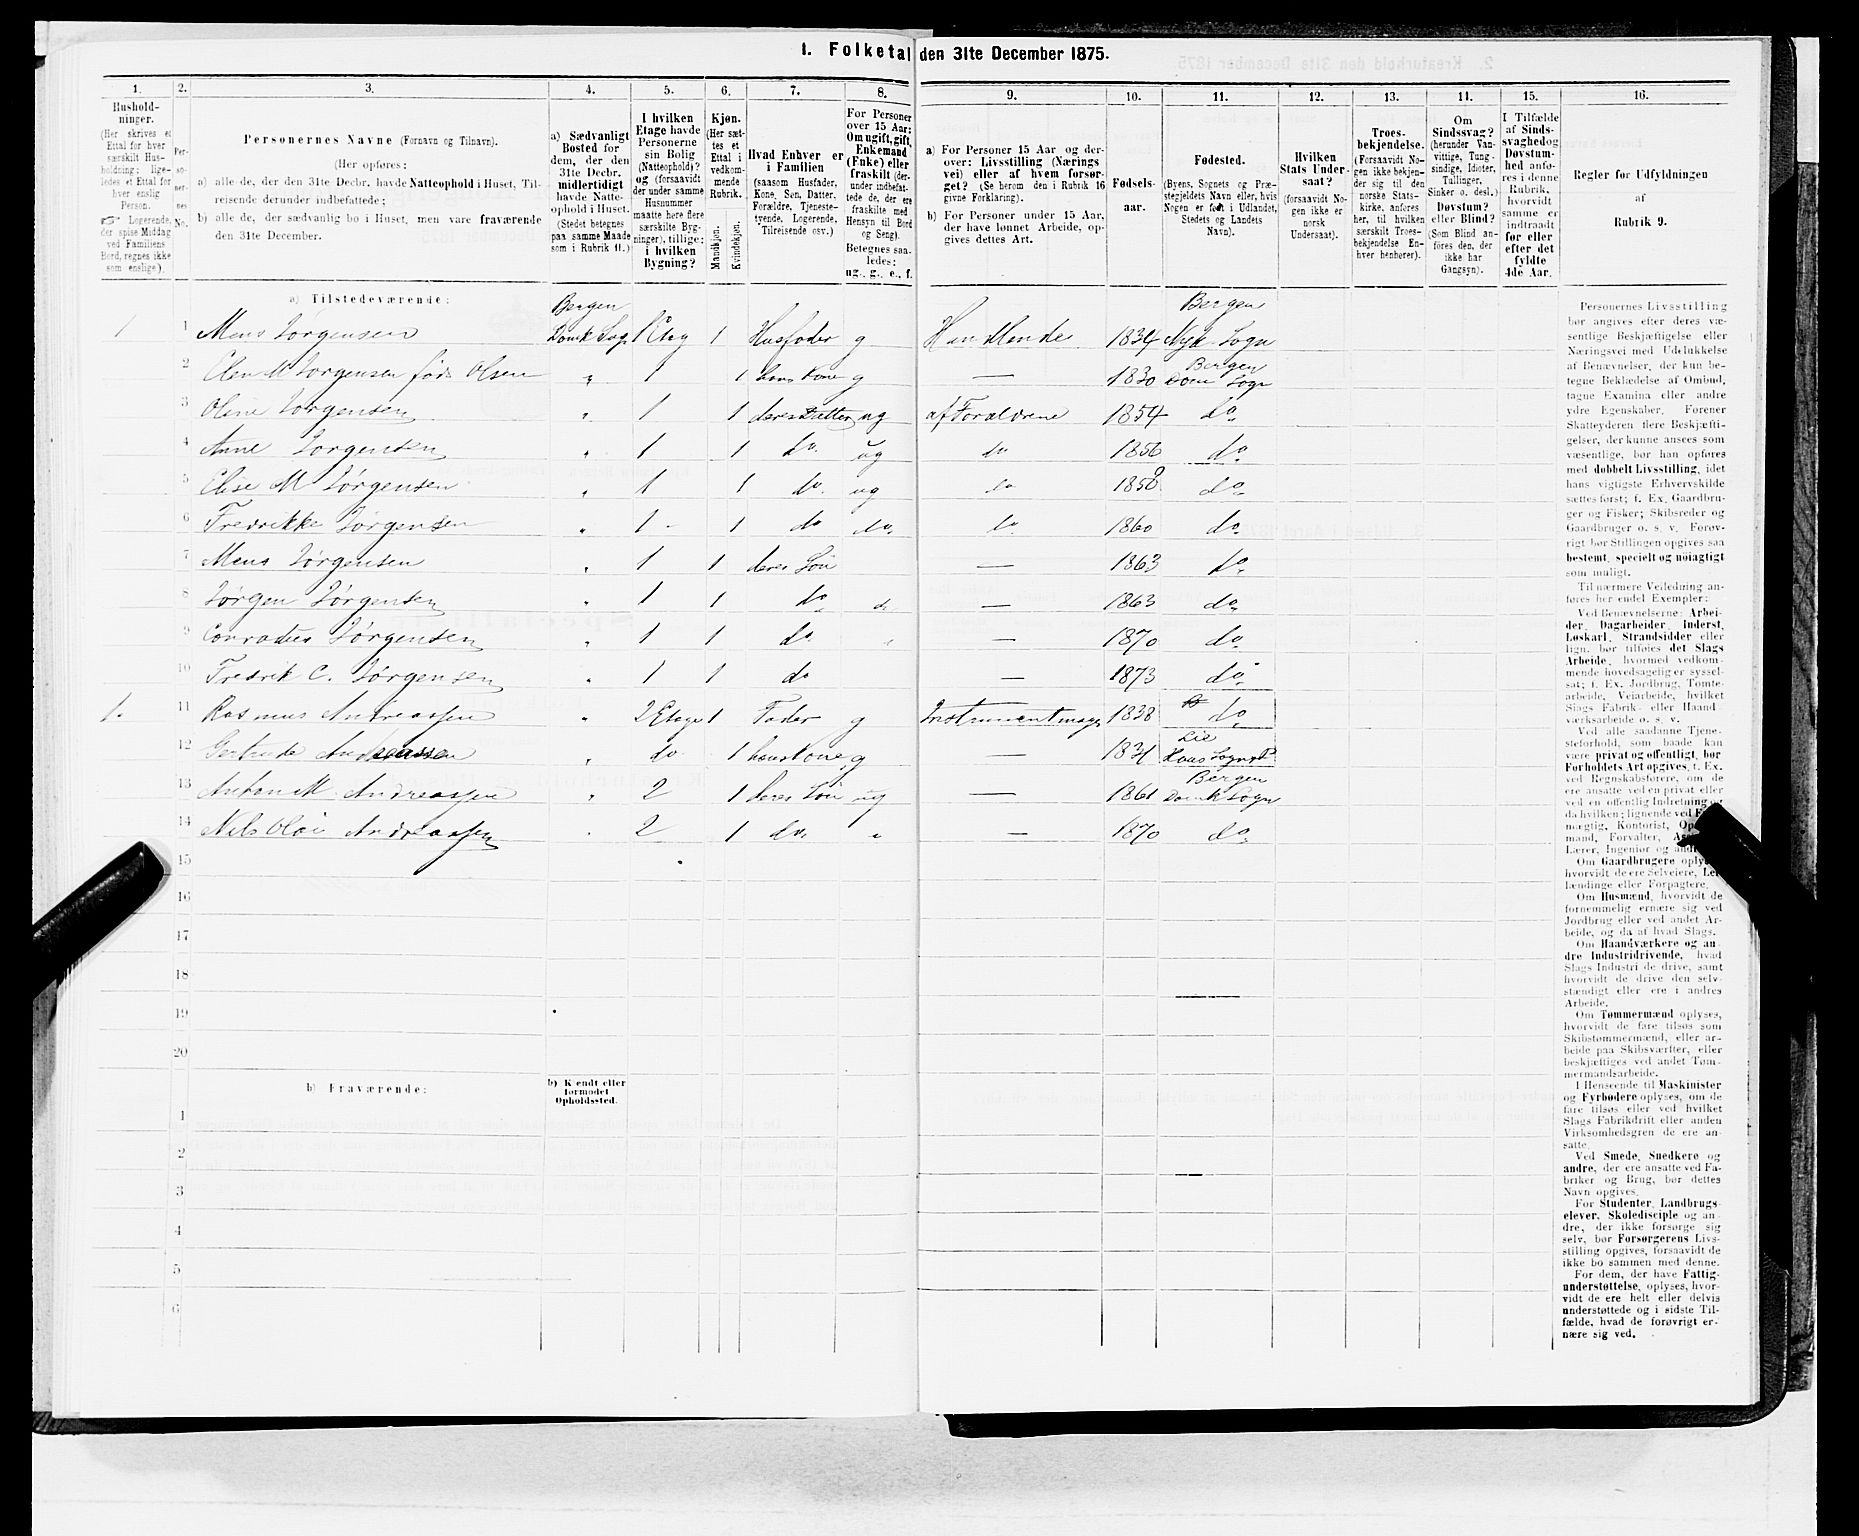 1. Folketal den 31te December 1875.
1. 2. 3. 4. 5. 6. 7. 8. 9. 10. 11. 12. 13. 14. 15. 16.
Hushold-
ninger.
(Her skrives et
Ettal for hver
særskilt Hus-
holdning; lige-
ledes et Ettal for
hver enslig
Person.
☞ Logerende,
der spise Middag
ved Familiens
Bord, regnes ikke
som enslige).
Per-
so-
ner-
nes
No.
Personernes Navne (Fornavn og Tilnavn).
(Her opføres:
a) alle de, der den 31te Decbr. havde Natteophold i Huset, Til-
reisende derunder indbefattede;
b) alle de, der sædvanlig bo i Huset, men vare fraværende
den 31te December.
a) Sædvanligt
Bosted for
dem, der den
31te Decbr.
midlertidigt
havde Natte-
ophold i Huset.
(Stedet betegnes
paa samme Maade
som i Rubrik 11.)
I hvilken
Etage havde
Personerne
sin Bolig
(Natteophold)?
og (forsaavidt
der under samme
Husnummer
maatte høre flere
særskilte Byg-
ninger), tillige:
i hvilken
Bygning?
Kjøn.
(Her sæt-
tes et
Ettal i
vedkom-
mende
Rubrik.
Mandkjøn.
Kvindekjøn.
Hvad Enhver er
i Familien
(saasom Husfader,
Kone, Søn, Datter,
Forældre, Tjeneste-
tyende, Logerende,
Tilreisende osv.)
For Personer
over 15 Aar:
Om ugift, gift,
Enkemand
(Enke) eller
fraskilt (der-
under indbefat-
tede de, der ere
fraskilte med
Hensyn til Bord
og Seng).
Betegnes saa-
ledes:
ug., g., e., f.
a) For Personer 15 Aar og der-
over: Livsstilling (Nærings
vei) eller af hvem forsør-
get? (Se herom den i Rubrik 16
givne Forklaring).
b) For Personer under 15 Aar,
der have lønnet Arbeide, op-
gives dettes Art.
Fødsels-
aar.
Fødested.
(Byens, Sognets og Præ-
stegjeldets Navn eller, hvis
Nogen er født i Udlandet,
Stedets og Landets
Navn).
Hvilken
Stats Under-
saat?
(forsaavidt No-
gen ikke er
norsk
Undersaat).
Troes-
bekjendelse.
(Forsaavidt No-
gen ikke bekjen-
der sig til den
norske Stats-
kirke, anføres
her, til hvilken
særskilt Troes-
bekjendelse En-
hver henhører).
Om
Sindssvag?
(herunder Van-
vittige, Tung-
sindige, Idioter,
Tullinger,
Sinker o. desl.)
Døvstum?
eller Blind?
(Som Blind an-
føres den, der
ikke har
Gangsyn).
I Tilfælde
af Sinds-
svaghedog
Døvstum-
hed anfø-
res i denne
Rubrik,
hvorvidt
samme er
indtraadt
før eller
efter det
fyldte
4de Aar.
Regler for Udfyldningen
af
Rubrik 9.
a) Tilstedeværende:
1 1 Mens Jørgensen Bergen Domk Sog 1 Etag 1 Husfader g Handlende 1834 Bergen Nyk. Sogn
2 Elen M Jørgensen føds Olsen " 1 1 hans Kone g — 1830 Bergen Dom Sogn
3 Oline Jørgensen " 1 1 deres Datter ug af Forældrene 1854 do
4 Anne Jørgensen " 1 1 do. ug do 1856 do
5 Elise M Jørgensen " 1 1 do. ug do 1858 do
6 Fredrikke Jørgensen " 1 1 do do do. 1860 do
7 Mens Jørgensen " 1 1 deres Søn — 1863 do
8 Jørgen Jørgensen " 1 1 do — 1863 do
9 Conradus Jørgensen " 1 1 do — 1870 do
10 Fredrik C. Jørgensen " 1 1 do 1873 do
1. 11 Rasmus Andreassen " 2 Etage 1 Fader g Instrumentmag 1838 do
12 Gertrude Andreassen " do 1 hans Kone g — 1831
13 Anton M. Andreassen " 2 1 deres Søn ug — 1861 Bergen Domk Sogn
14 Nils Olai Andreassen 2 1 do. " — 1870 do
15
16
17
18
19
20
b) Fraværende: b) Kendt eller
formodet
Opholdssted.
1
2
3
4
5
6
Personernes Livsstilling
bør angives efter deres væ-
sentlige Beskjæftigelse eller
Næringsvei med Udelukkelse
af Benævnelser, der kun be-
tegne Beklædelse af Ombud,
tagne Examina eller andre
ydre Egenskaber. Forener
Skatteyderen flere Beskjæfti-
gelser, der kunne ansees som
væsentlige, bør han opføres
med dobbelt Livsstilling, idet
hans vigtigste Erhvervskilde
sættes først; f. Ex. Gaardbru-
ger og Fisker; Skibsreder og
Gaardbruger o. s. v. Forøv-
rigt bør Stillingen opgives saa
bestemt, specielt og nøiagtigt
som muligt.
Til nærmere Veiledning an-
føres her endel Exempler:
Ved Benævnelserne: Arbei-
der, Dagarbeider, Inderst,
Løskarl, Strandsidder eller
lign. bør tilføies det Slags
Arbeide, hvormed vedkom-
mende hovedsagelig er syssel-
sat; f. Ex. Jordbrug, Tomte-
arbeide, Veiarbeide, hvilket
Slags Fabrik- eller Haand-
værksarbeide o. s. v.
Ved alle saadanne Tjene-
steforhold, som baade kan
være privat og offentligt, bør
Forholdets Art opgives, t. Ex.
ved Regnskabsførere, om de
ere ansatte ved en privat eller
ved en offentlig Indretning og
da hvilken; lignende ved
mægtig, Kontorist,
mand, Forvalter,
Lærer, Ingeniør og
Om Gaardbrugere
hvorvidt de ere Selveiere,
lændinge eller Forpagtere.
Om Husmænd, hvorvidt de
fornemmelig ernære sig ved
Jordbrug eller ved andet Ar-
beide, og da af hvad Slags.
Om Haandværkere og an-
dre Industridrivende, hvad
Slags Industri de drive, samt
hvorvidt de drive den selv-
stændigt eller ere i andres
Arbeide.
Om Tømmermænd oplyses,
hvorvidt de fare tilsøs som
Skibstømmermænd, eller ar-
beide paa Skibsværfter, eller
beskjæftiges ved andet Tøm-
mermandsarbeide.
I Henseende til Maskinister
og Fyrbødere oplyses, om de
fare tilsøs eller ved hvilket
Slags Fabrikdrift eller anden
Virksomhedsgren de ere an-
satte.
Ved Smede, Snedkere og
andre, der ere ansatte ved Fa-
briker og Brug, bør dettes
Navn opgives.
For Studenter, Landbrugs-
elever, Skoledisciple og an-
dre, der ikke forsørge sig
selv, bør Forsørgerens Livs-
stilling opgives, forsaavidt de
ikke bo sammen med denne.
For dem, der have Fattig-
understøttelse, oplyses, hvor-
vidt de ere helt eller delvis
understøttede og i sidste Til-
fælde, hvad de forøvrigt er-
nære sig ved.